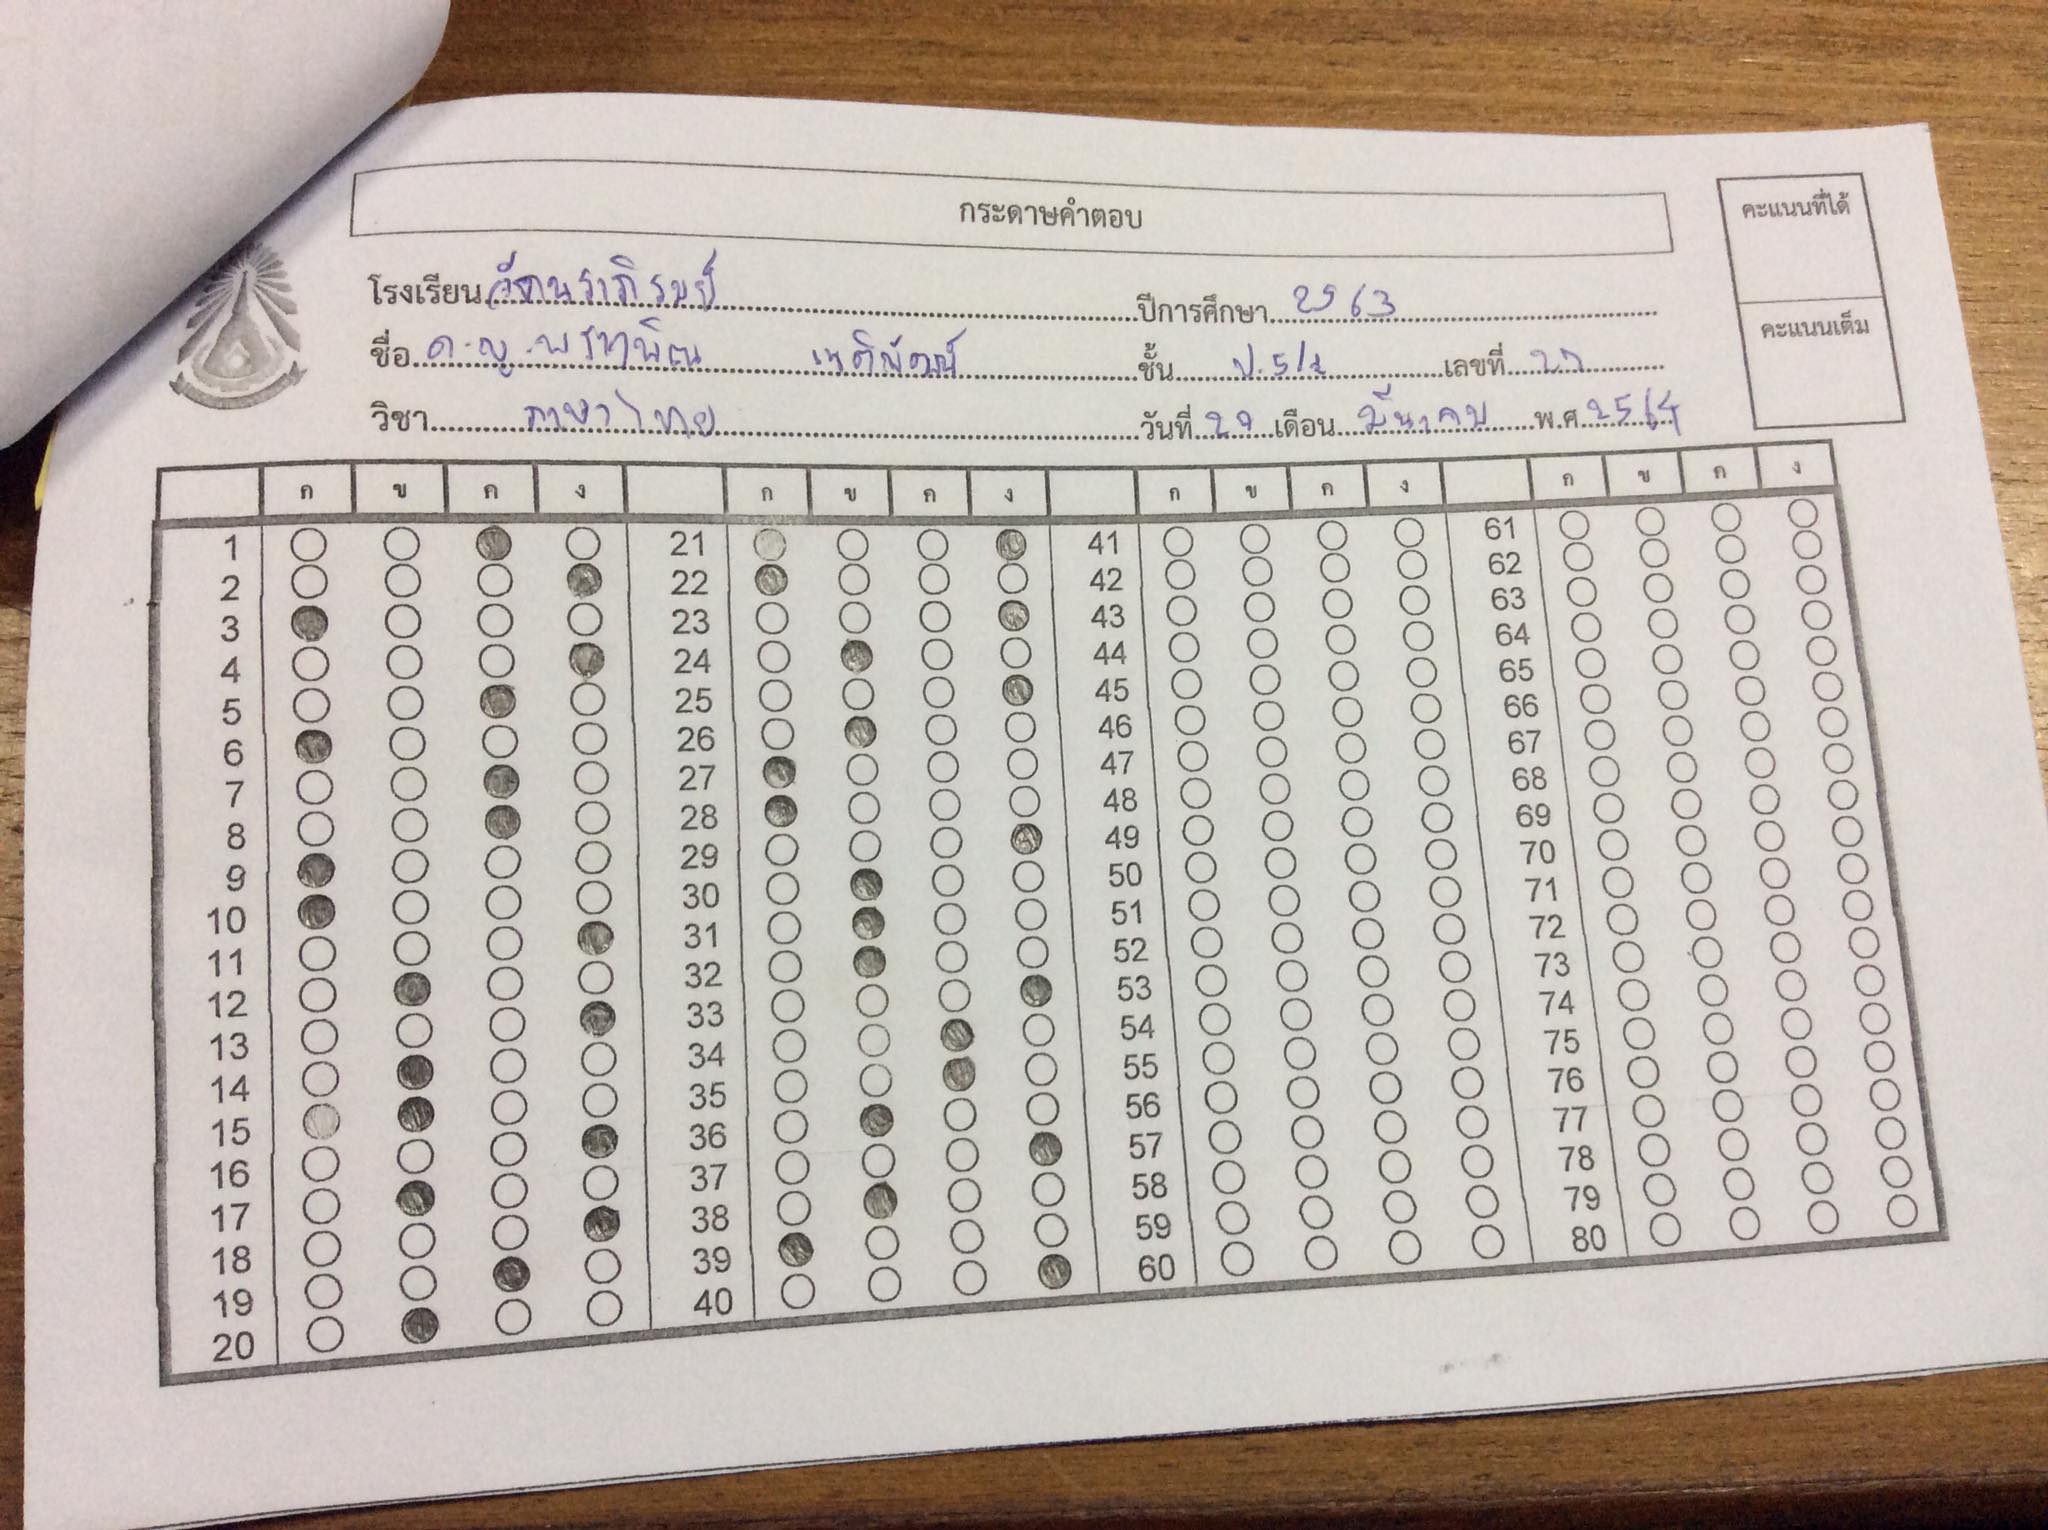 กระดาษคำตอบ
คะแนนที่ได้
โรงเรียน วัดนราภิรมย์ ปีการศึกษา 2563
คะแนนเต็ม
ชื่อ ด.ญ. ชั้น ป.5/2 เลขที่ 27
วิชา ภาษาไทย วันที่ 29 เดือน มีนาคม พ.ศ. 2564
ก ข ค ง ก ข ค ง ก ข ค ง ก ข ค ง
1 21 41 61
2 22 42 62
3 23 43 63
4 24 44 64
5 25 45 65
6 26 46 66
7 27 47 67
8 28 48 68
9 29 49 69
10 30 50 70
11 31 51 71
12 32 52 72
13 33 53 73
14 34 54 74
15 35 55 75
16 36 56 76
17 37 57 77
18 38 58 78
19 39 59 79
20 40 60 80